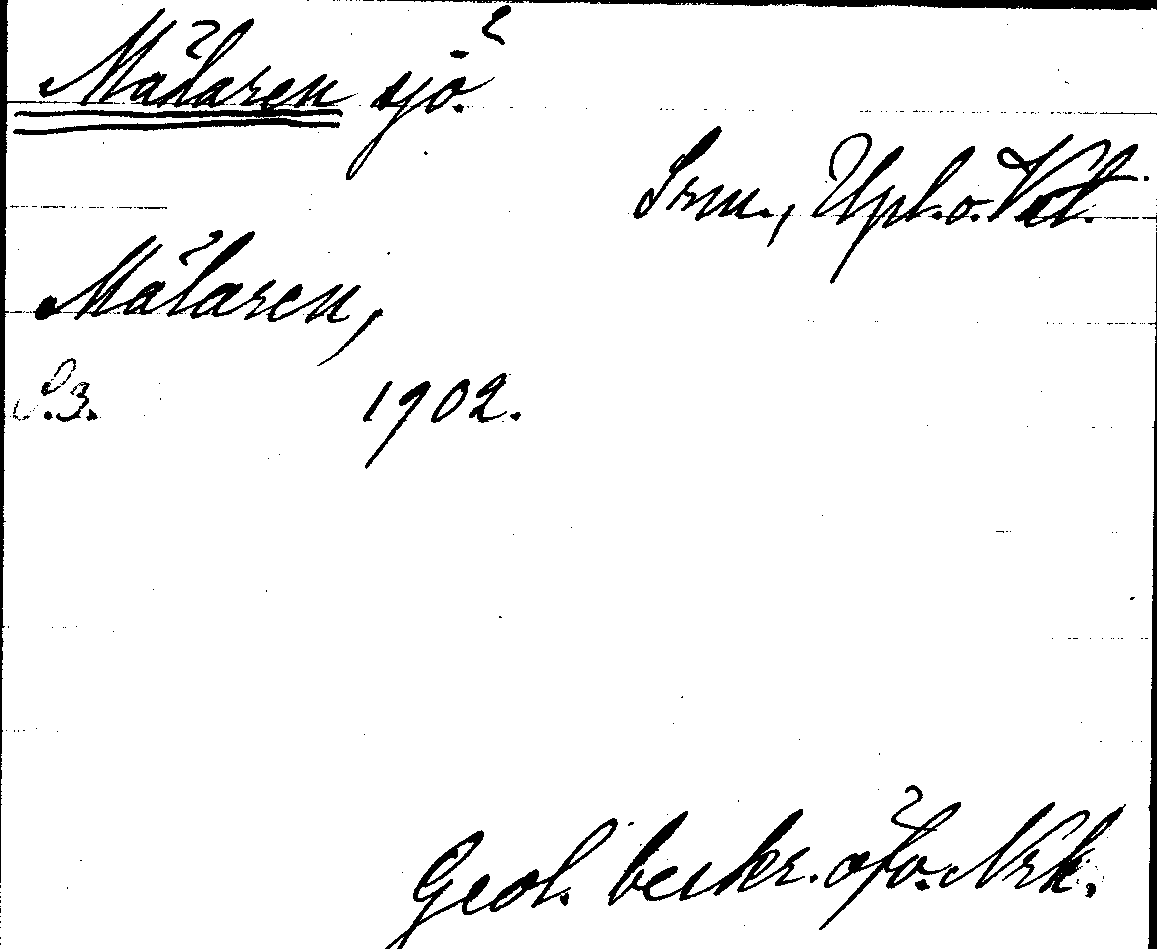 Mälaren sjö.
Srm., Upl. o. Vstl.
Mälaren,
S. 3. 1902.
Geol. beskr. öfv. Nrk.